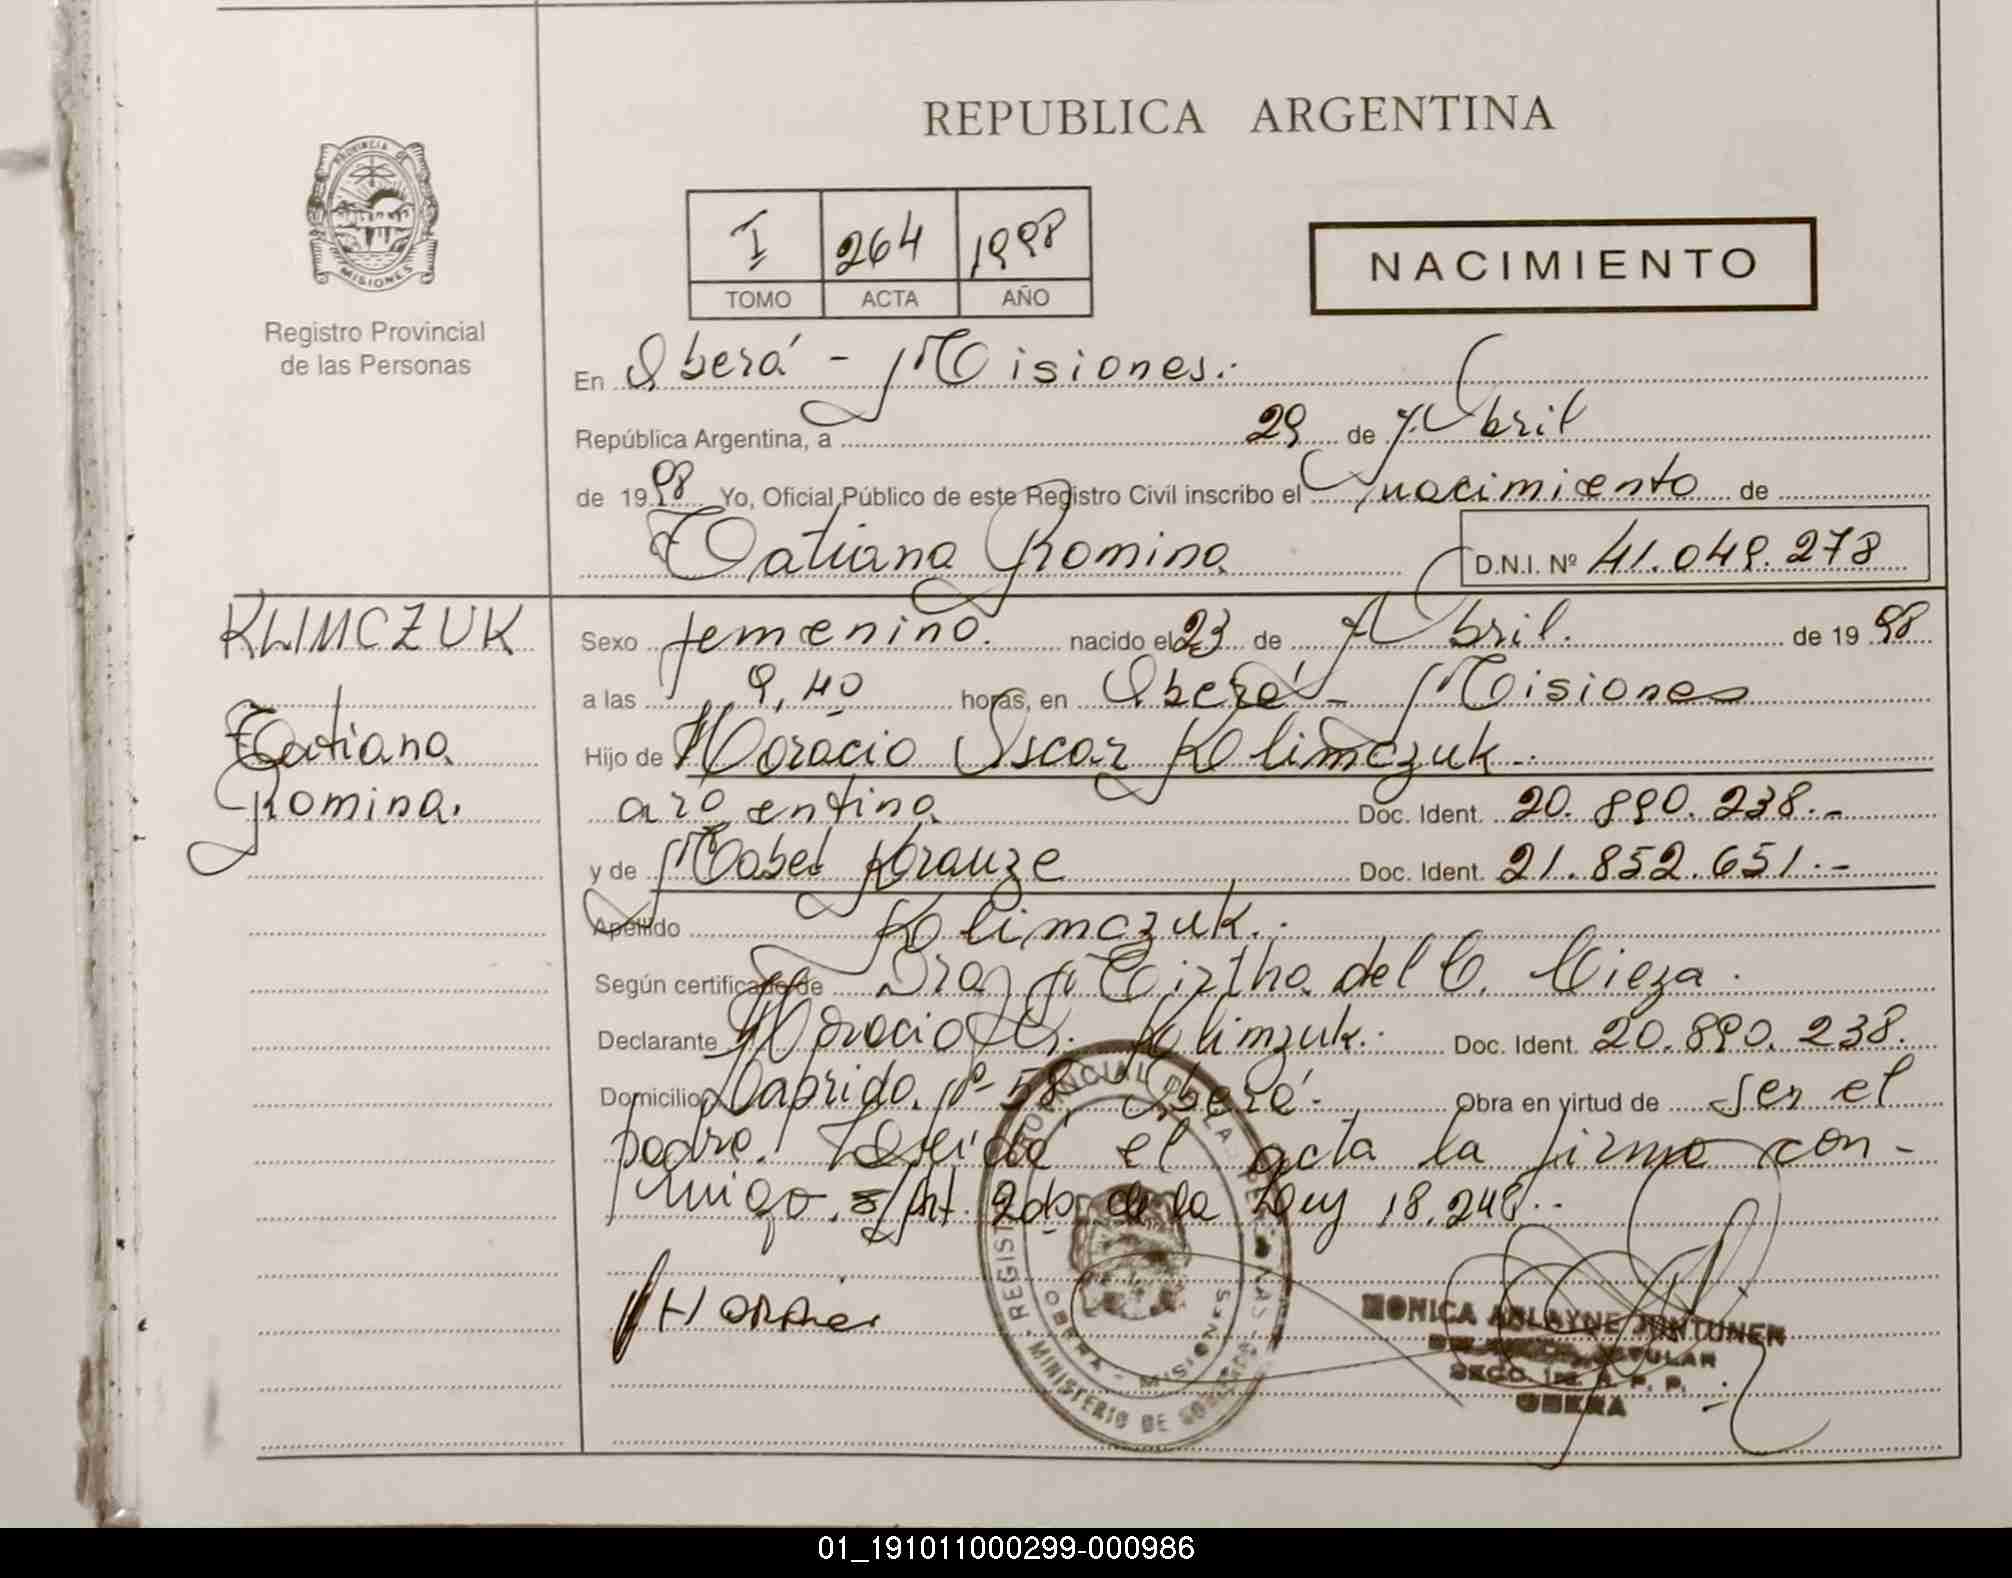 REPUBLICA ARGENTINA
PROVINCIA DE
MISIONES
Registro Provincial
de las Personas
I 264 1998
TOMO ACTA AÑO
NACIMIENTO
En Oberá - Misiones.-
República Argentina, a 29 de Abril
de 1998 Yo, Oficial Público de este Registro Civil inscribo el nacimiento de
Tatiana Romina D.N.I. Nº 41.049.278
KLIMCZUK
Tatiana
Romina.
Sexo femenino. nacido el 23 de Abril. de 1998
a las 9,40 horas, en Oberá - Misiones
Hijo de Horacio Oscar Klimczuk.-
argentina Doc. Ident. 20.890.238.-
y de Mabel Krauze Doc. Ident. 21.852.651.-
Apellido Klimczuk.-
Según certificado de Dra. Mirtha del C. Cieza.
Declarante Horacio O. Klimzuk. Doc. Ident. 20.890.238.
Domicilio Laprida Nº 58 Oberá.- Obra en virtud de ser el
padre. Leída el acta la firma con-
migo. s/Art. 2do de la Ley 18.248.-
REGISTRO PROVINCIAL DE LAS PERSONAS
MINISTERIO DE GOBIERNO
OBERA - MISIONES
MONICA
TITULAR
R. P. P.
OBERA
01_191011000299-000986